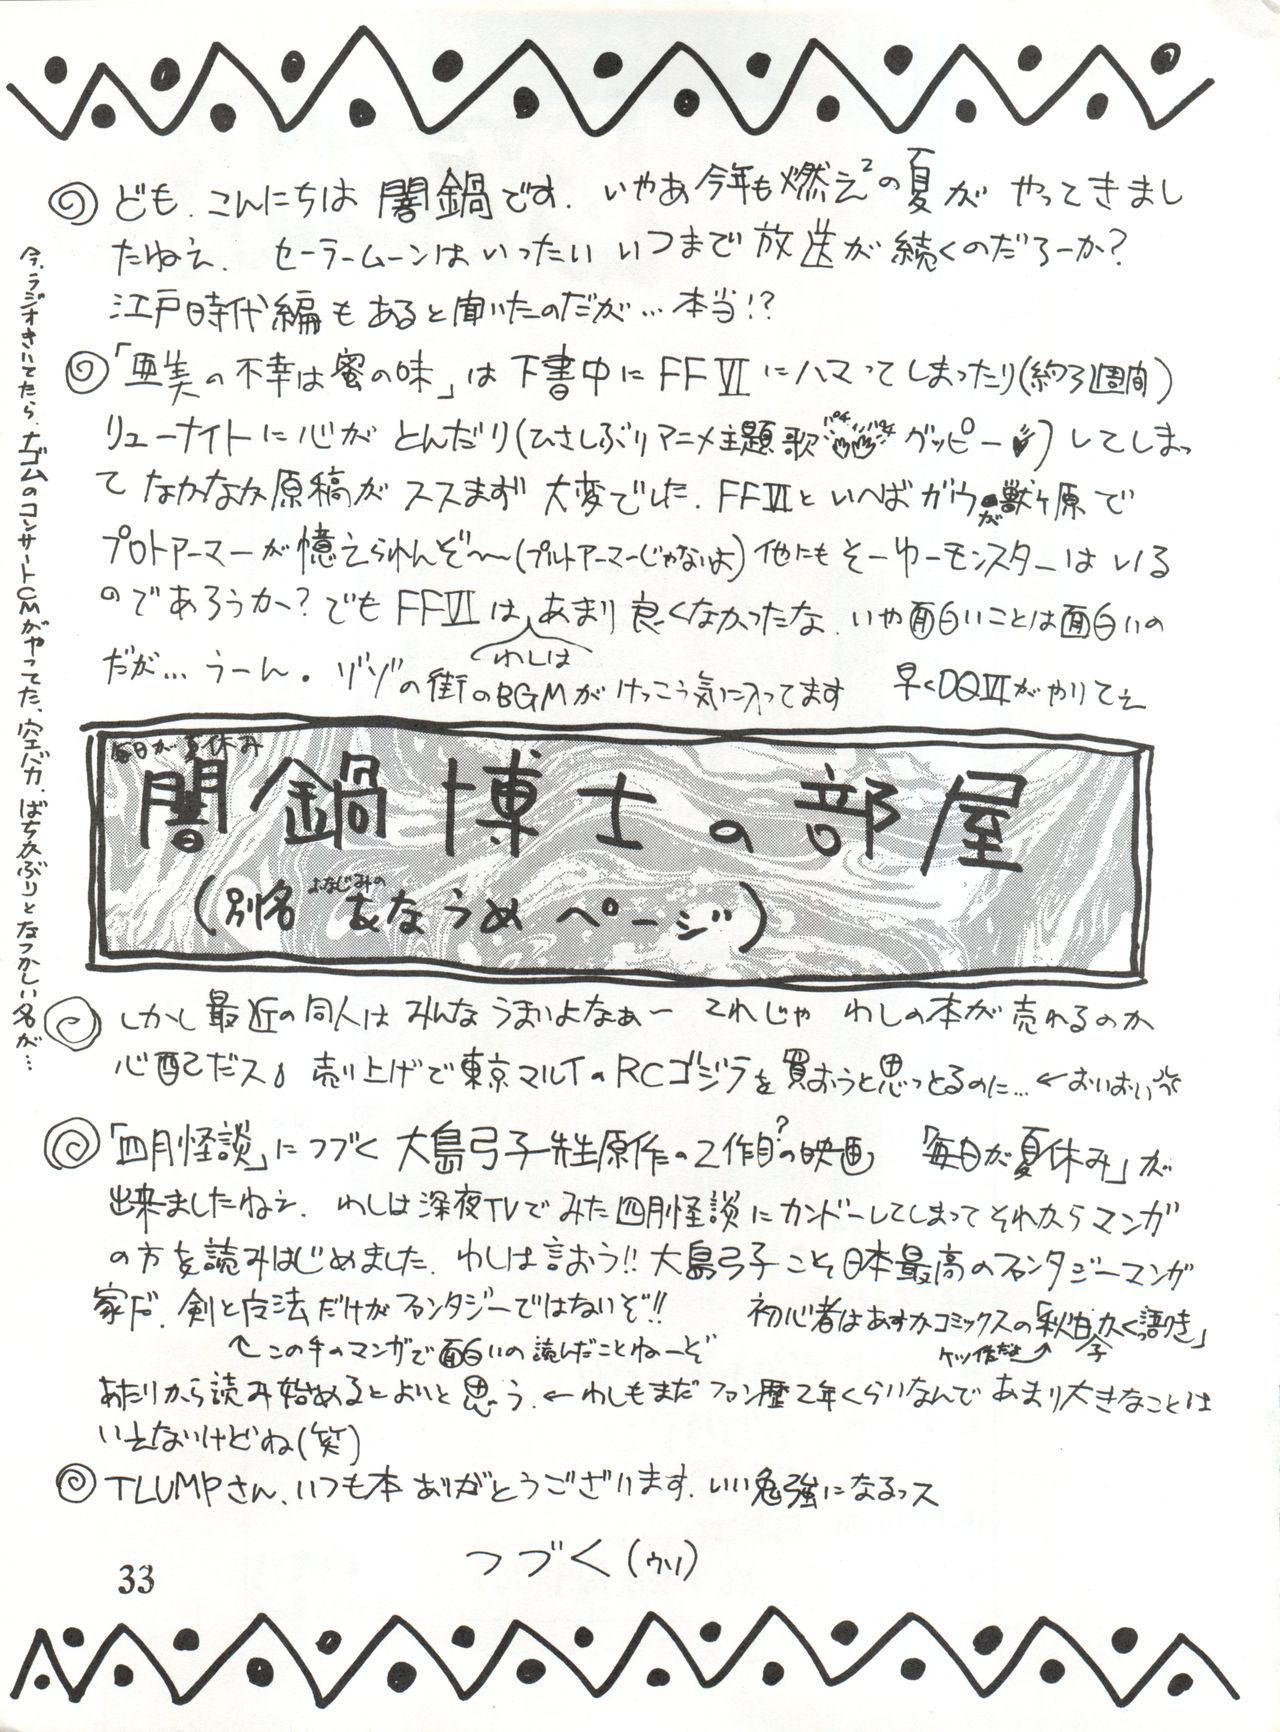 ども、こんにちは 闇鍋です. いやあ今年も燃え²の夏が やってきまし
たねえ. セーラームーンはいったい いつまで 放送が続くのだろーか?
江戸時代編もあると聞いたのだが…本当!?
「亜美の不幸は蜜の味」は下書中にFFⅥにハマってしまったり(約3週間)
リューナイトに心がとんだり(ひさしぶりアニメ主題歌 グッピー)してしまっ
て なかなか原稿がススまず 大変でした. FFⅥといへばガウが獣ヶ原で
プロトアーマーが憶えられんぞ〜(プルトアーマーじゃないよ)他にもそーゆーモンスターはいる
のであろうか?でもFFⅥは、あまり良くなかったな. いや面白いことは面白いの
わしは
だが…うーん。ゾゾの街のBGMがけっこう気に入ってます 早くDQⅥがやりてえ
今、ラジオきいてたら、ナゴムのコンサートCMがやってた、空バカ、ばちかぶりとなつかしい名が…
毎日が夏休み
闇鍋博士の部屋
(別名 おなじみの あなうめ ページ)
しかし最近の同人はみんなうまいよなぁー これじゃ わしの本が売れるのか
心配だス 売り上げで東京マルイのRCゴジラを買おうと思っとるのに…←おいおい
「四月怪談」につづく大島弓子先生原作の2作目?の映画 「毎日が夏休み」が
出来ましたねえ. わしは深夜TVでみた四月怪談にカンドーしてしまってそれからマンガ
の方を読みはじめました. わしは言おう!!大島弓子こそ日本最高のファンタジーマンガ
家だ. 剣と魔法だけがファンタジーではないぞ!! 初心者はあすかコミックスの「秋日子かく語りき」
↑この手のマンガで面白いの読んだことねーぞ ケッ作だよ↗
あたりから読み始めるとよいと思う. ←わしもまだファン歴2年くらいなんで あまり大きなことは
いえないけどね(笑)
TLUMPさん、いつも本ありがとうございます. いい勉強になるっス
つづく(ウソ)
33